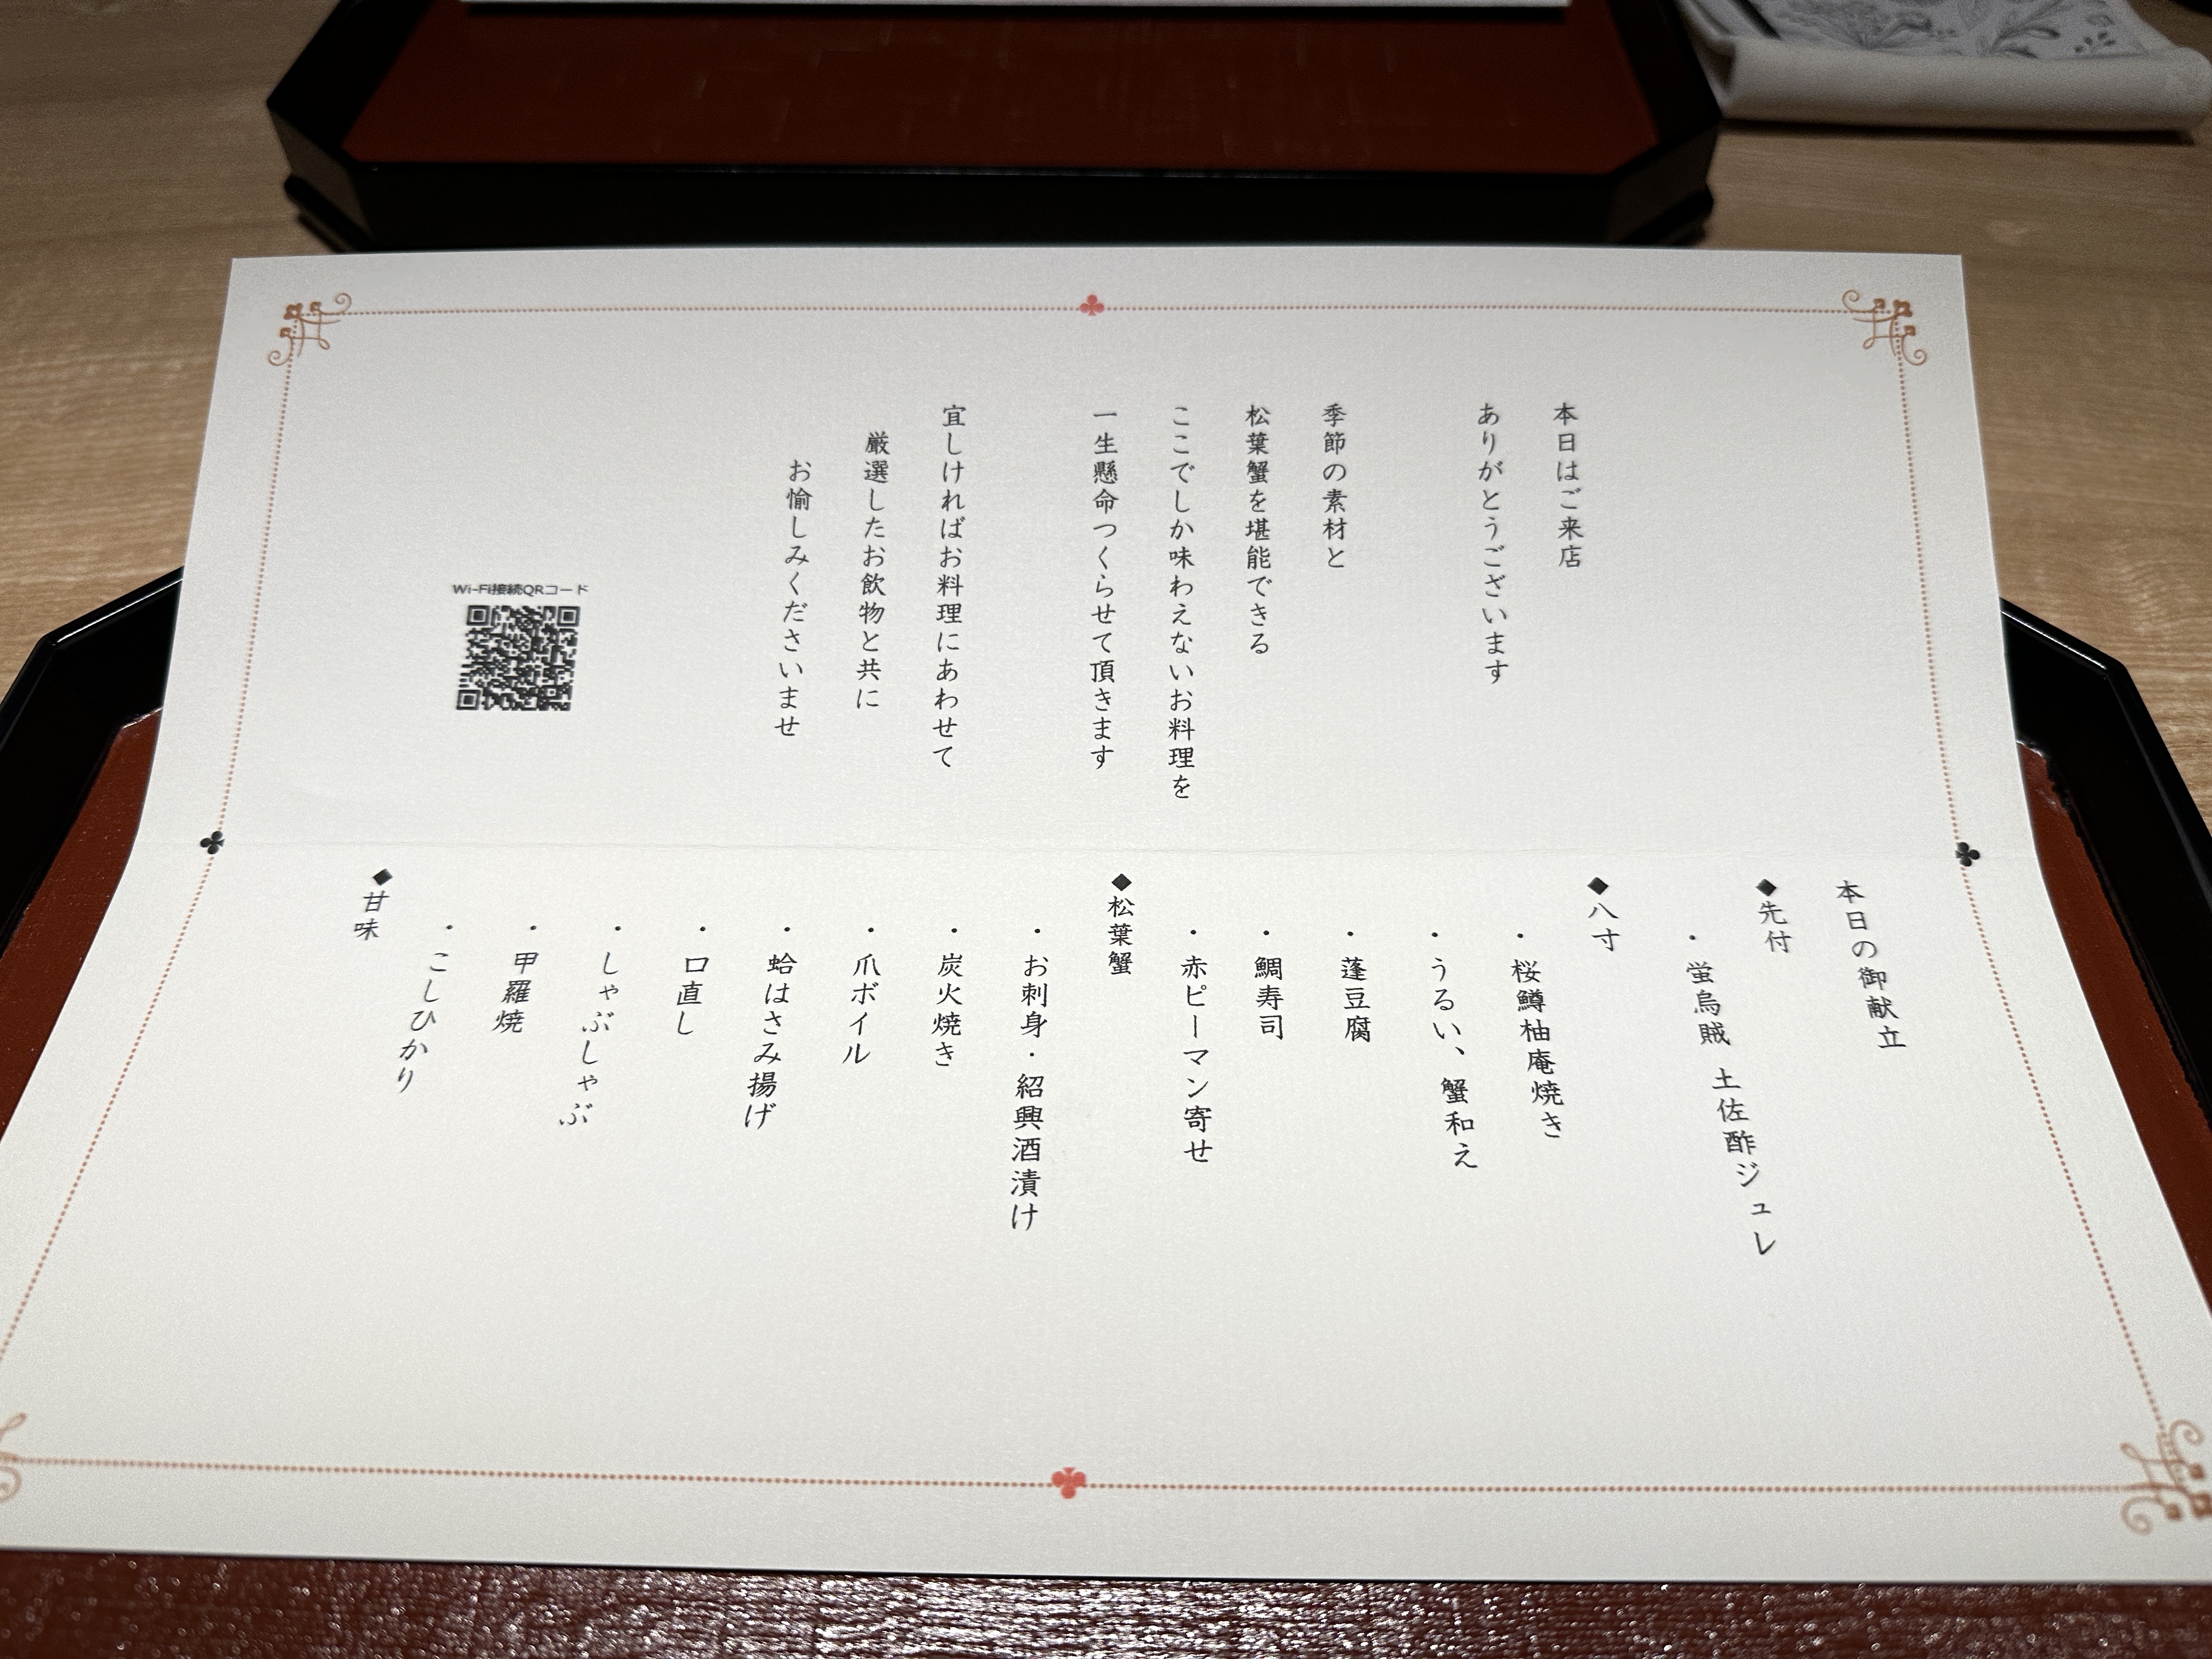 本日はご来店
ありがとうございます
季節の素材と
松葉蟹を堪能できる
ここでしか味わえないお料理を
一生懸命つくらせて頂きます
宜しければお料理にあわせて
厳選したお飲物と共に
お愉しみくださいませ
Wi-Fi接続QRコード
本日の御献立
◆先付
・蛍烏賊 土佐酢ジュレ
◆八寸
・桜鱒柚庵焼き
・うるい、蟹和え
・蓬豆腐
・鯛寿司
・赤ピーマン寄せ
◆松葉蟹
・お刺身・紹興酒漬け
・炭火焼き
・爪ボイル
・蛤はさみ揚げ
・口直し
・しゃぶしゃぶ
・甲羅焼
・こしひかり
◆甘味